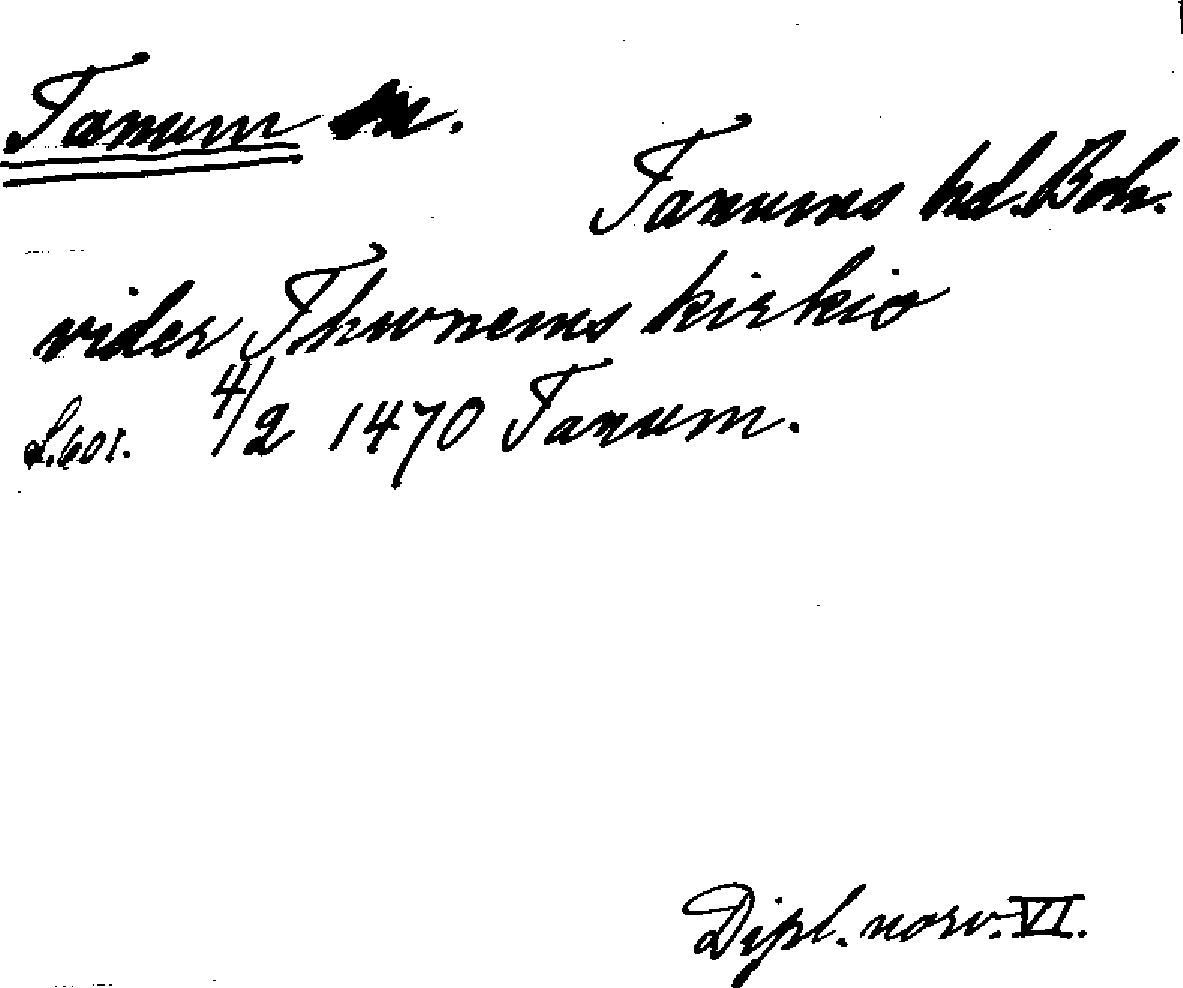 Tanum sn.
Tanums hd. Boh.
vider Thwnems kirkio
S. 601. 4/2 1470 Tanum.
Dipl. norv. VI.